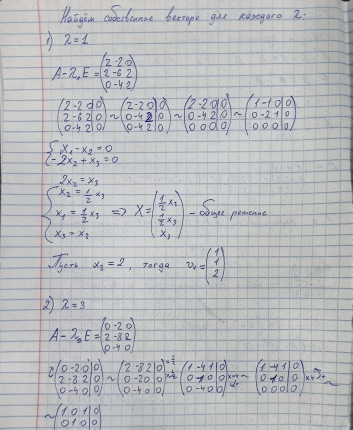 Найдём собственные вектора для каждого λ:
1) λ=1
A-λ₁E = (2 -2 0
2 -6 2
0 -4 2)
(2 -2 0|0
2 -6 2|0
0 -4 2|0) ~ (2 -2 0|0
0 -4 2|0
0 -4 2|0) ~ (2 -2 0|0
0 -4 2|0
0 0 0|0) ~ (1 -1 0|0
0 -2 1|0
0 0 0|0)
{x₁-x₂=0
-2x₂+x₃=0
2x₂=x₃
{x₂=½x₃
x₁=½x₃ => X=(½x₃
½x₃
x₃) - общее решение
x₃=x₃
Пусть x₃=2, тогда v₁=(1
1
2)
2) λ=3
A-λ₂E=(0 -2 0
2 -8 2
0 -4 0)
(0 -2 0|0
2 -8 2|0
0 -4 0|0) ~ (2 -8 2|0
0 -2 0|0
0 -4 0|0) ~ (1 -4 1|0
0 1 0|0
0 -4 0|0) ~ (1 -4 1|0
0 1 0|0
0 0 0|0) ~
~ (1 0 1|0
0 1 0|0